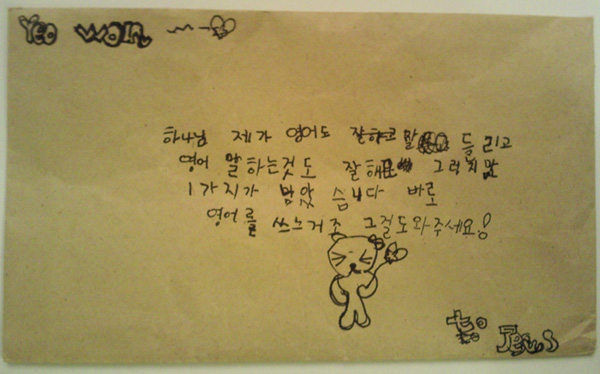 Yeo Won
하나님 제가 영어도 잘하고 말 들리고
영어 말하는것도 잘해 그렇지만
1가지가 맘았 습니다 바로
영어를 쓰느거죠 그걸도와주세요!
to Jesus